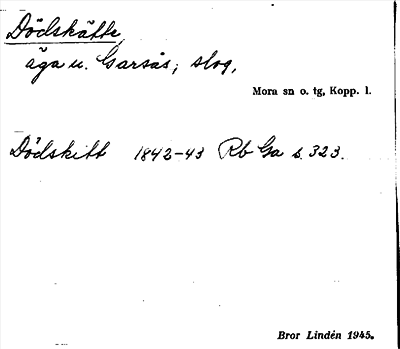 Dödskätte,
äga u. Garsås; skog,
Mora sn o. tg, Kopp. l.
Dödskitt 1842-43 Rb Ga s. 323.
Bror Lindén 1945.